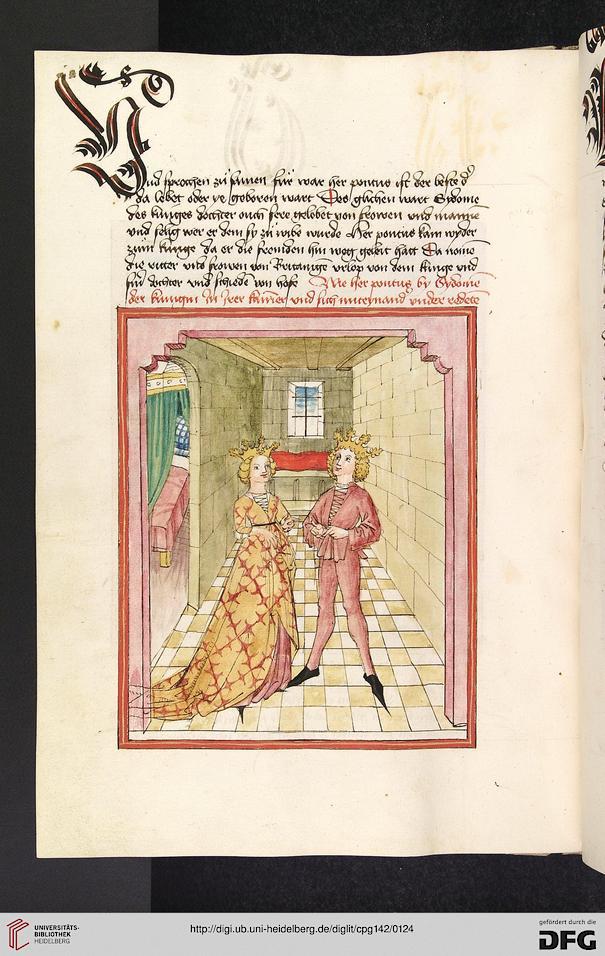 Und sprochen zü samen für war her pontus ist der beste d
da lebet oder ye geboren wart Des glichen wart Sydonie
des kunges dochter ouch sere gelobet von frowen und manne
und selig wer er dem sy zü wibe wurde Her pontus kam wyder
züm kunge da er die fremden hin weg geleit hatt Da nome
die ritter und frowen von Britanige urlop von dem kunge und
sin dochter und schiede von hofe Wie her pontus by Sydonie
der kungin in irer kamer und sich miteynand under redete
UNIVERSITÄTS-
BIBLIOTHEK
HEIDELBERG
http://digi.ub.uni-heidelberg.de/diglit/cpg142/0124
gefördert durch die
DFG